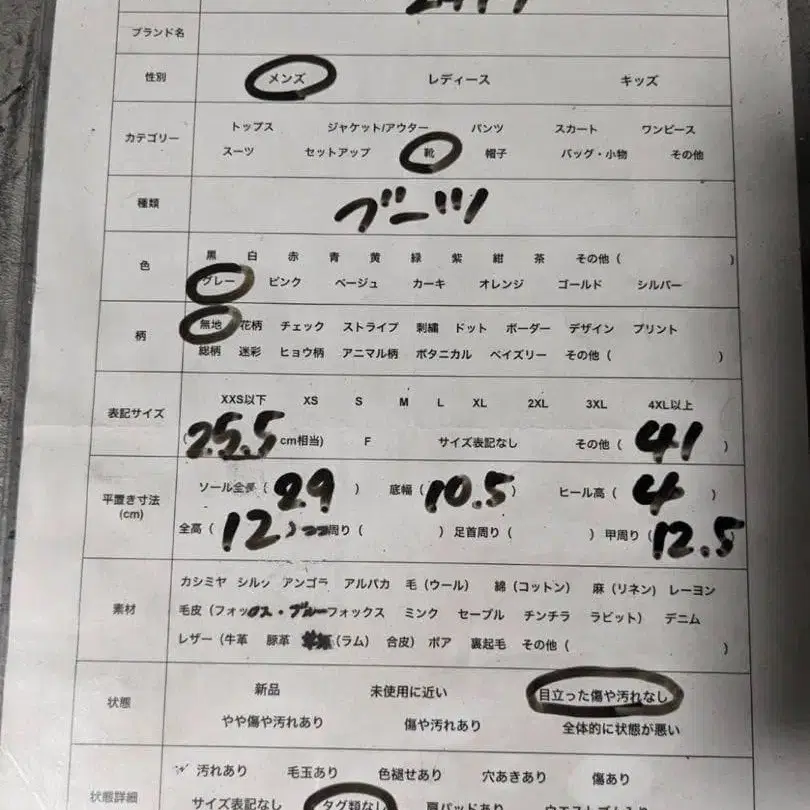 ブランド名
性別 メンズ レディース キッズ
カテゴリー トップス ジャケット/アウター パンツ スカート ワンピース
スーツ セットアップ 靴 帽子 バッグ・小物 その他
種類 ブーツ
色 黒 白 赤 青 黄 緑 紫 紺 茶 その他（ ）
グレー ピンク ベージュ カーキ オレンジ ゴールド シルバー
柄 無地 花柄 チェック ストライプ 刺繍 ドット ボーダー デザイン プリント
総柄 迷彩 ヒョウ柄 アニマル柄 ボタニカル ペイズリー その他（ ）
表記サイズ XXS以下 XS S M L XL 2XL 3XL 4XL以上
（25.5cm相当） F サイズ表記なし その他（ 41 ）
平置き寸法(cm) ソール全長（ 29 ） 底幅（ 10.5 ） ヒール高（ 4 ）
全高（ 12 ） 周り（ ） 足首周り（ ） 甲周り（ 12.5
素材 カシミヤ シルク アンゴラ アルパカ 毛（ウール） 綿（コットン） 麻（リネン） レーヨン
毛皮（フォックス・ブルーフォックス ミンク セーブル チンチラ ラビット） デニム
レザー（牛革 豚革 （ラム） 合皮） ボア 裏起毛 その他（ ）
状態 新品 未使用に近い 目立った傷や汚れなし
やや傷や汚れあり 傷や汚れあり 全体的に状態が悪い
状態詳細 汚れあり 毛玉あり 色褪せあり 穴あきあり 傷あり
サイズ表記なし タグ類なし 肩パッドあり